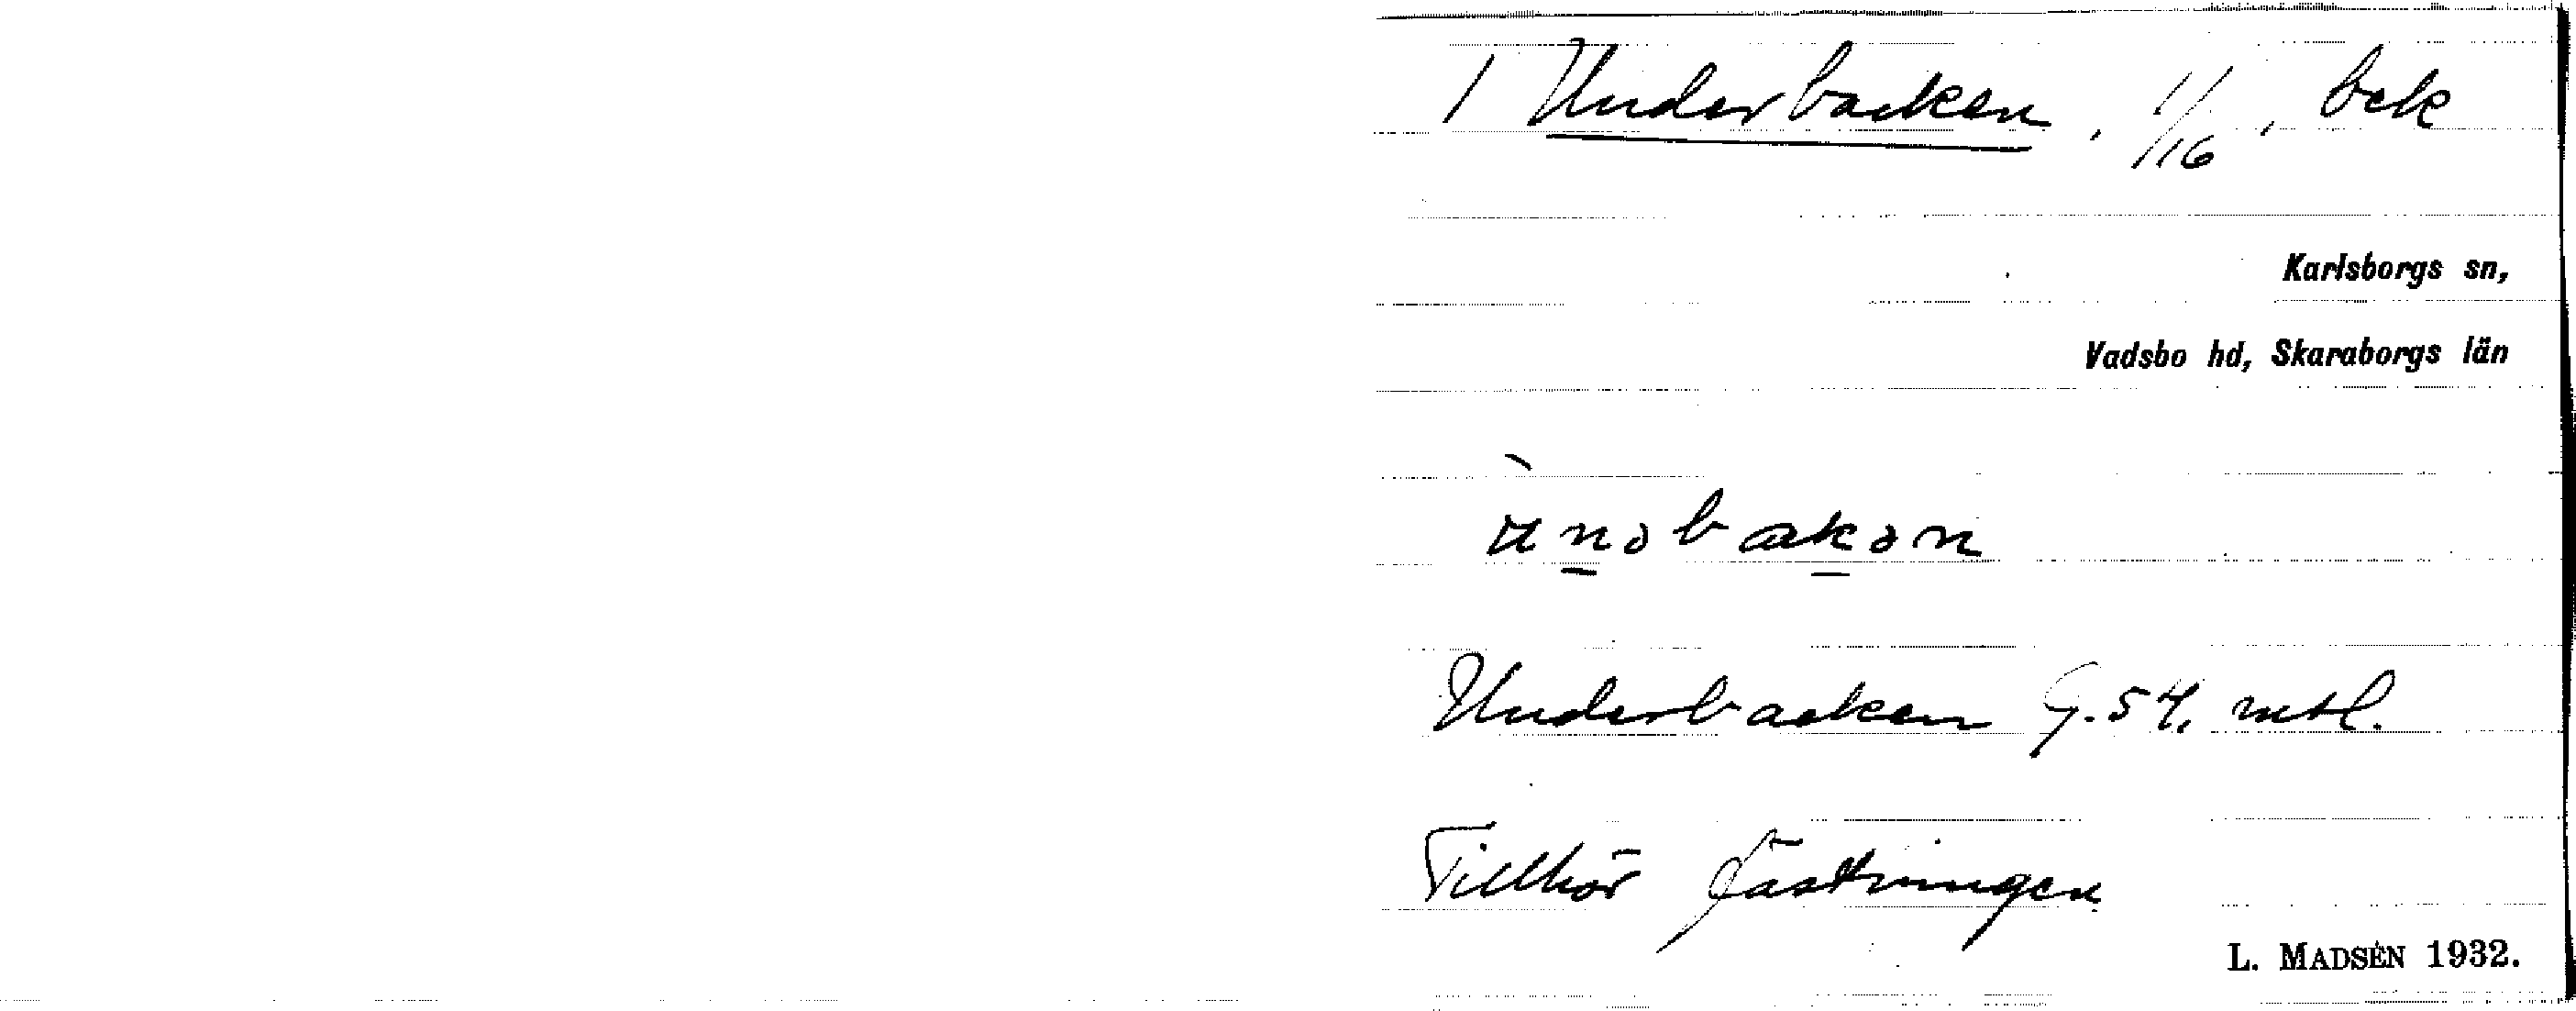 1 Underbacken, 1/16, bek
Karlsborgs sn,
Vadsbo hd, Skaraborgs län
ùnəbakən
Underbacken G.54. mtl.
Tillhör fästningen
L. MADSÉN 1932.